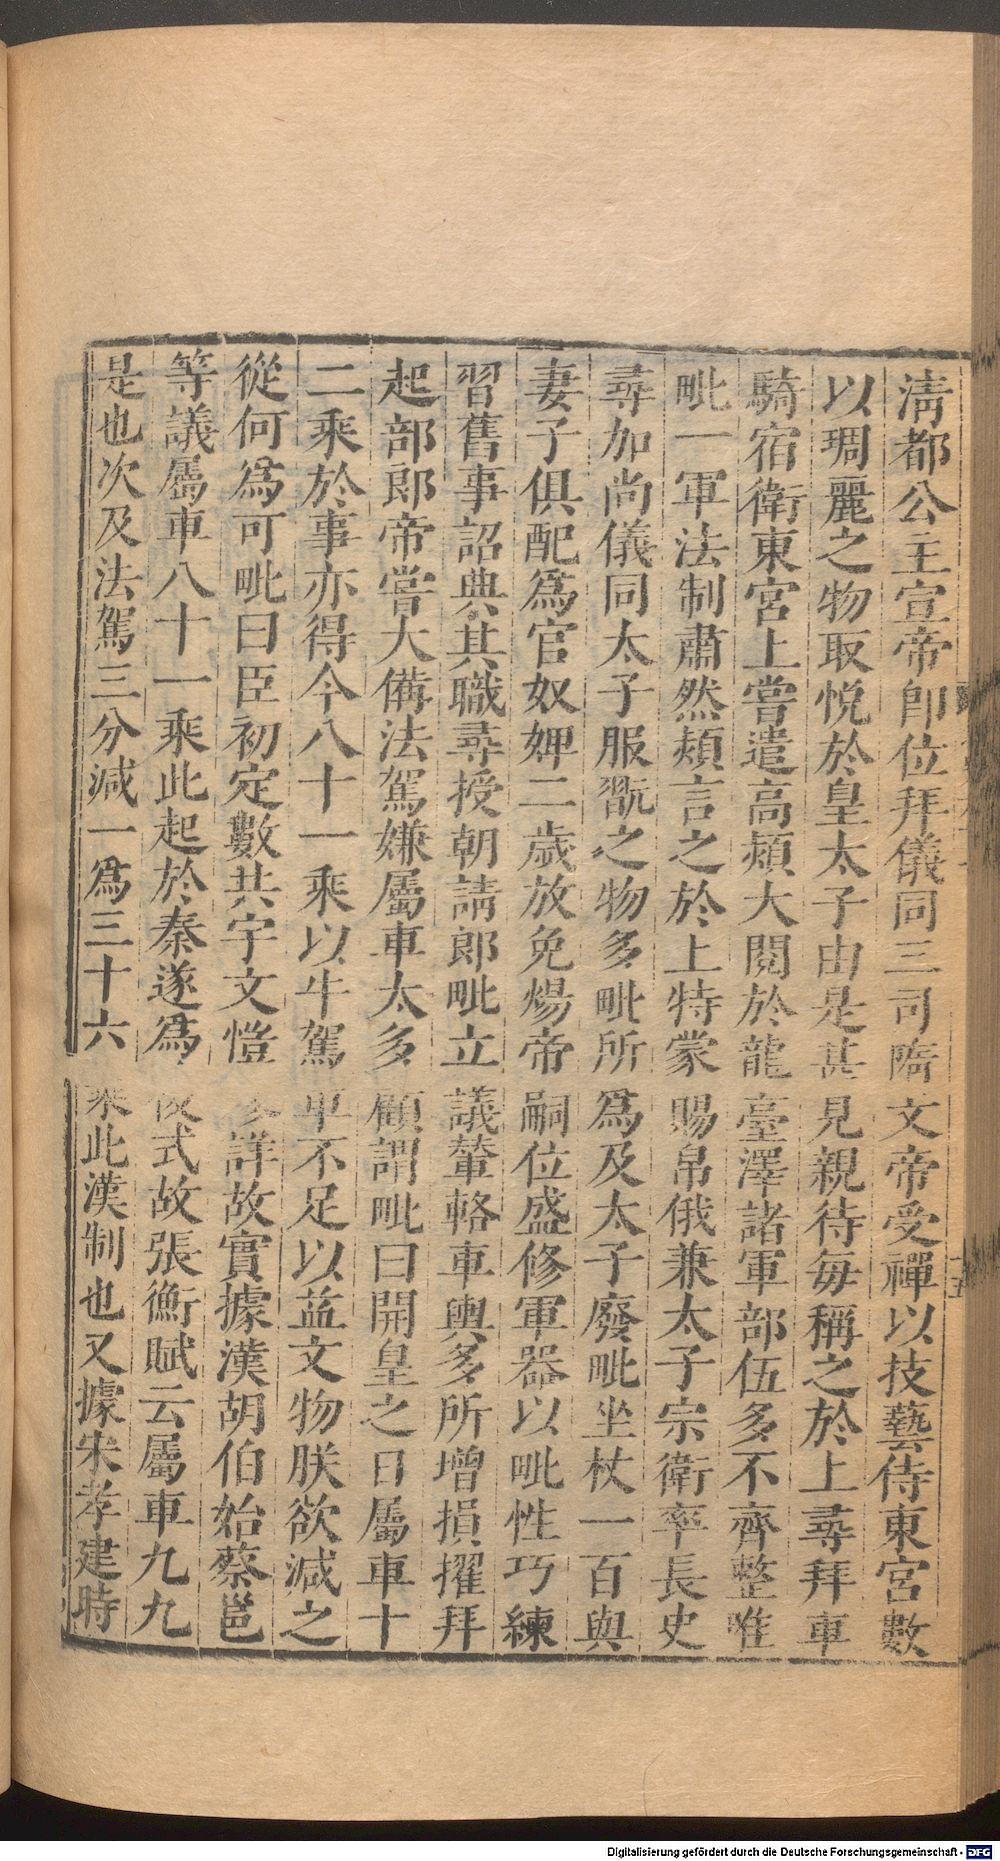 淸都公主宣帝卽位拜儀同三司隋文帝受禪以技藝侍東宮數
以琱麗之物取悅於皇太子由是甚見親待每稱之於上尋拜車
騎宿衛東宮上嘗遣高熲大閱於龍臺澤諸軍部伍多不齊整唯
毗一軍法制肅然熲言之於上特蒙賜帛俄兼太子宗衛率長史
尋加尚儀同太子服翫之物多毗所爲及太子廢毗坐杖一百與
妻子俱配爲官奴婢二歲放免煬帝嗣位盛修軍器以毗性巧練
習舊事詔典其職尋授朝請郎毗立議輦輅車輿多所增損擢拜
起部郎帝嘗大備法駕嫌屬車太多顧謂毗曰開皇之日屬車十
二乘於事亦得今八十一乘以牛駕車不足以益文物朕欲減之
從何爲可毗曰臣初定數共宇文愷參詳故實據漢胡伯始蔡邕
等議屬車八十一乘此起於秦遂爲後式故張衡賦云屬車九九
是也次及法駕三分減一爲三十六乘此漢制也又據宋孝建時
Digitalisierung gefördert durch die Deutsche Forschungsgemeinschaft - DFG